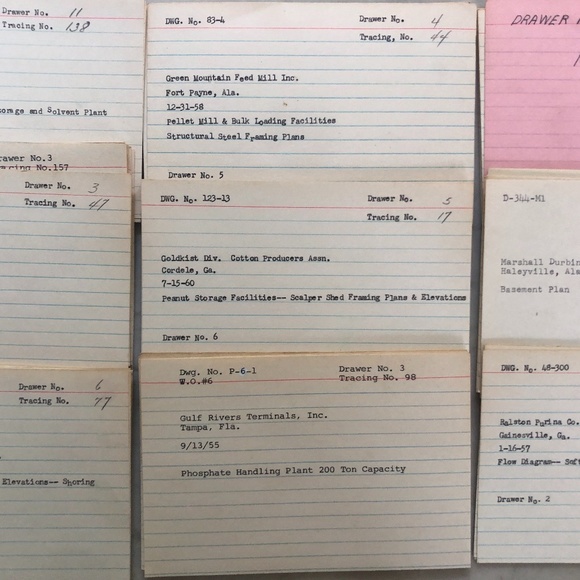 Drawer No. 11
Tracing No. 138
orage and Solvent Plant
rawer No.3
racing No.157
Drawer No. 3
Tracing No. 47
Drawer No. 6
Tracing No. 77
Elevations-- Shoring
DWG. No. 83-4 Drawer No. 4
Tracing, No. 44
Green Mountain Feed Mill Inc.
Fort Payne, Ala.
12-31-58
Pellet Mill & Bulk Loading Facilities
Structural Steel Framing Plans
Drawer No. 5
DWG. No. 123-13 Drawer No. 5
Tracing No. 17
Goldkist Div. Cotton Producers Assn.
Cordele, Ga.
7-15-60
Peanut Storage Facilities-- Scalper Shed Framing Plans & Elevations
Drawer No. 6
Dwg. No. P-6-1 Drawer No. 3
W.O.#6 Tracing No. 98
Gulf Rivers Terminals, Inc.
Tampa, Fla.
9/13/55
Phosphate Handling Plant 200 Ton Capacity
DRAWER
D-344-M1
Marshall Durbin
Haleyville, Ala
Basement Plan
DWG. No. 48-300
Ralston Purina Co.
Gainesville, Ga.
1-16-57
Flow Diagram-- Soft
Drawer No. 2